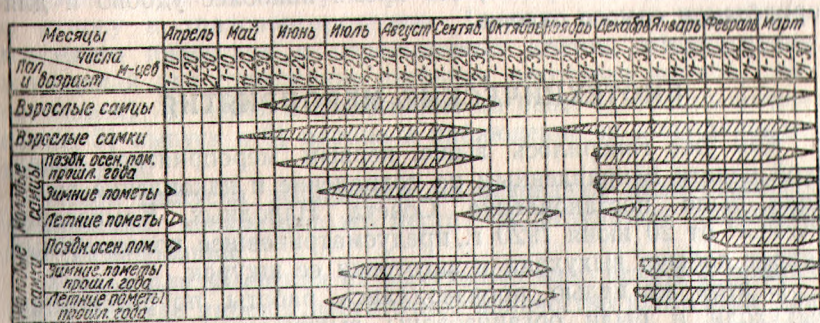 Месяцы Апрель Май Июнь Июль Август Сентяб. Октябрь Ноябрь Декабрь Январь Февраль Март
числа м-цев
пол и возраст
1-10 11-20 21-30 1-10 11-20 21-30 1-10 11-20 21-30 1-10 11-20 21-30 1-10 11-20 21-30 1-10 11-20 21-30 1-10 11-20 21-30 1-10 11-20 21-30 1-10 11-20 21-30 1-10 11-20 21-30 1-10 11-20 21-30 1-10 11-20 21-30
Взрослые самцы
Взрослые самки
Молодые самцы
Поздн. осен. пом. прошл. года
Зимние пометы
Летние пометы
Молодые самки
Поздн. осен. пом.
Зимние пометы прошл. года
Летние пометы прошл. года